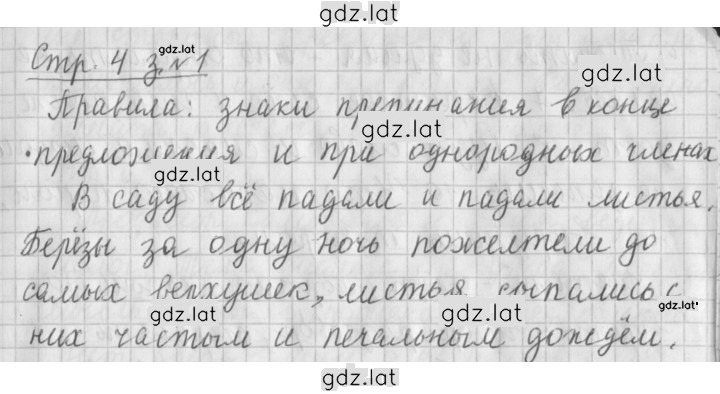 gdz.lat
Стр. 4 з. №1
gdz.lat
gdz.lat
Правила: знаки препинания в конце
gdz.lat
предложения и при однородных членах
gdz.lat
В саду всё падали и падали листья.
gdz.lat
Берёзы за одну ночь пожелтели до
gdz.lat
самых верхушек, листья сыпались с
gdz.lat
gdz.lat
них частым и печальным дождём.
gdz.lat